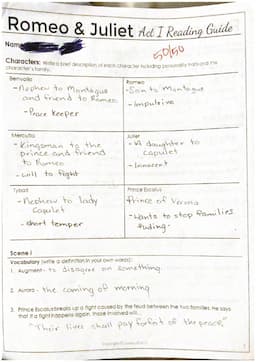 Romeo & Juliet Act I Reading Guide
Name
50/50
Characters: Write a brief description of each character including personality traits and the
character's family.
Benvolio
- Nephew to Montague
and friend to Romeo
- Peace keeper
Romeo
- Son to Montague
- Impulsive
Mercutio
- Kingsman to the
prince and friend
to Romeo
- will to fight
Juliet
- daughter to
Capulet
- Innocent
Tybalt
- Nephew to lady
Capulet
- short temper
Prince Escalus
Prince of Verona
- Wants to stop families
fuding.
Scene I
Vocabulary (write a definition in your own words):
1. Augment- to disagree on something
2. Aurora - the coming of morning
3. Prince Escalus breaks up a fight caused by the feud between the two families. He says
that if a fight happens again, those involved will...
"Their lives shall pay forfeit of the peace"